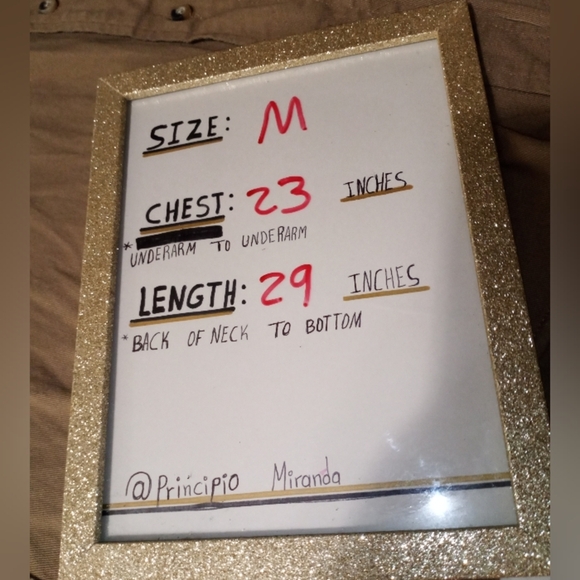 SIZE: M
CHEST: 23 INCHES
*UNDERARM TO UNDERARM
LENGTH: 29 INCHES
*BACK OF NECK TO BOTTOM
@Principio Miranda